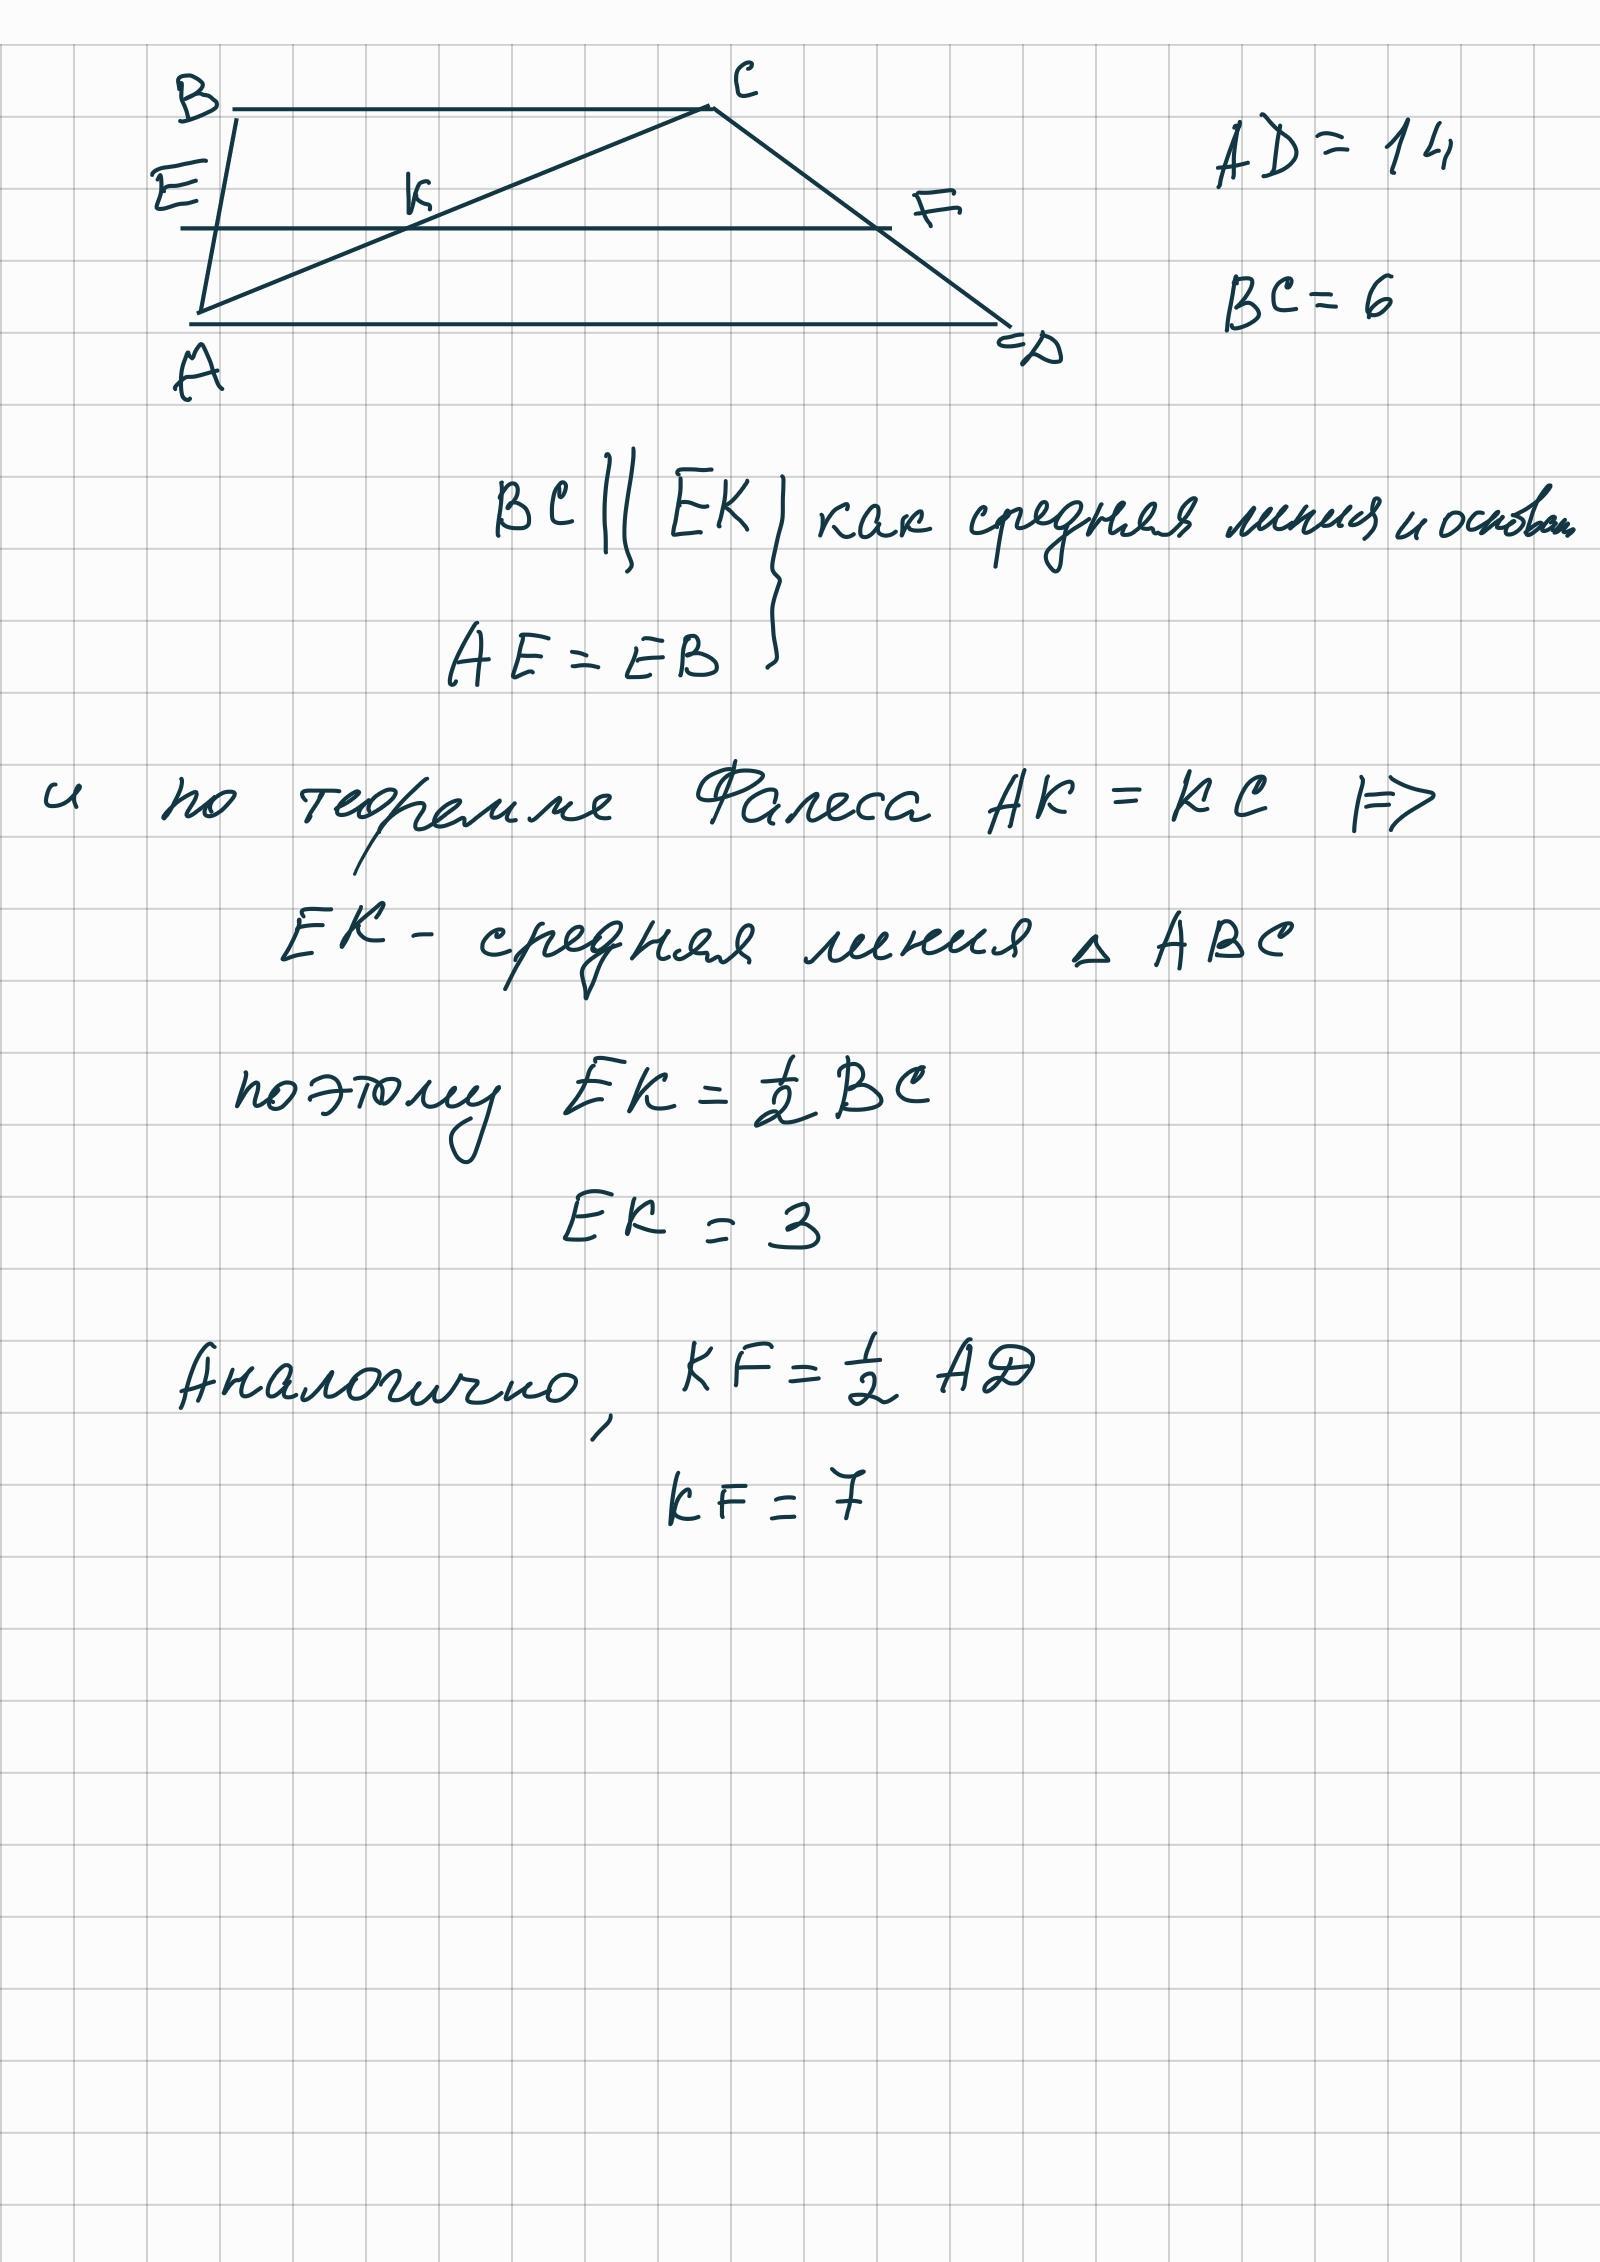 B
C
AD = 14
E
K
F
BC = 6
A
D
BC || EK } как средняя линия и основан
AE = EB
и по теореме Фалеса AK = KC |=>
EK - средняя линия △ ABC
поэтому EK = 1/2 BC
EK = 3
Аналогично, KF = 1/2 AD
KF = 7